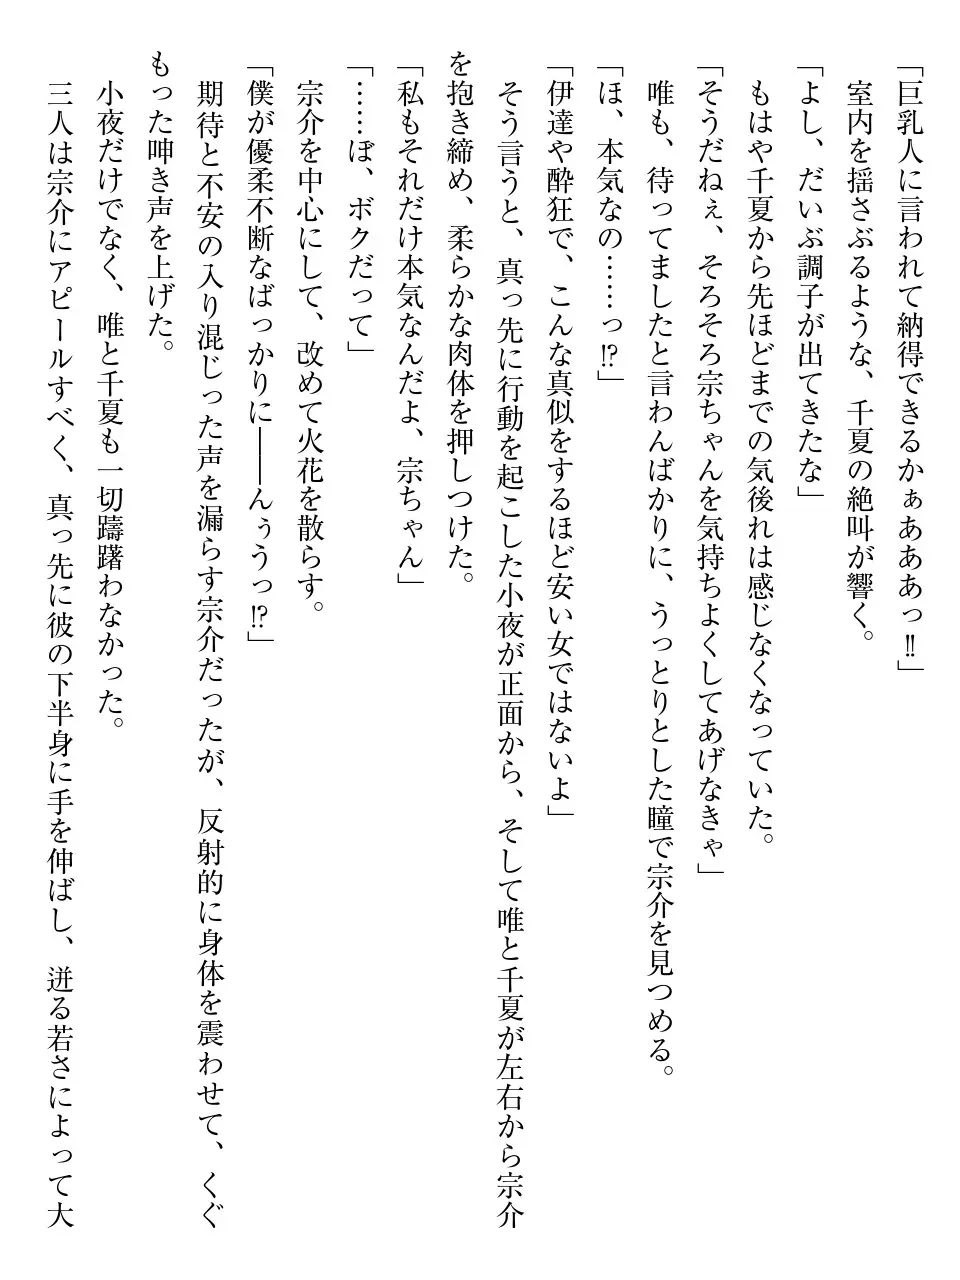 「巨乳人に言われて納得できるかぁあああっ‼」
室内を揺さぶるような、千夏の絶叫が響く。
「よし、だいぶ調子が出てきたな」
もはや千夏から先ほどまでの気後れは感じなくなっていた。
「そうだねぇ、そろそろ宗ちゃんを気持ちよくしてあげなきゃ」
唯も、待ってましたと言わんばかりに、うっとりとした瞳で宗介を見つめる。
「ほ、本気なの……っ⁉」
「伊達や酔狂で、こんな真似をするほど安い女ではないよ」
そう言うと、真っ先に行動を起こした小夜が正面から、そして唯と千夏が左右から宗介
を抱き締め、柔らかな肉体を押しつけた。
「私もそれだけ本気なんだよ、宗ちゃん」
「……ぼ、ボクだって」
宗介を中心にして、改めて火花を散らす。
「僕が優柔不断なばっかりに――んぅうっ⁉」
期待と不安の入り混じった声を漏らす宗介だったが、反射的に身体を震わせて、くぐ
もった呻き声を上げた。
小夜だけでなく、唯と千夏も一切躊躇わなかった。
三人は宗介にアピールすべく、真っ先に彼の下半身に手を伸ばし、迸る若さによって大